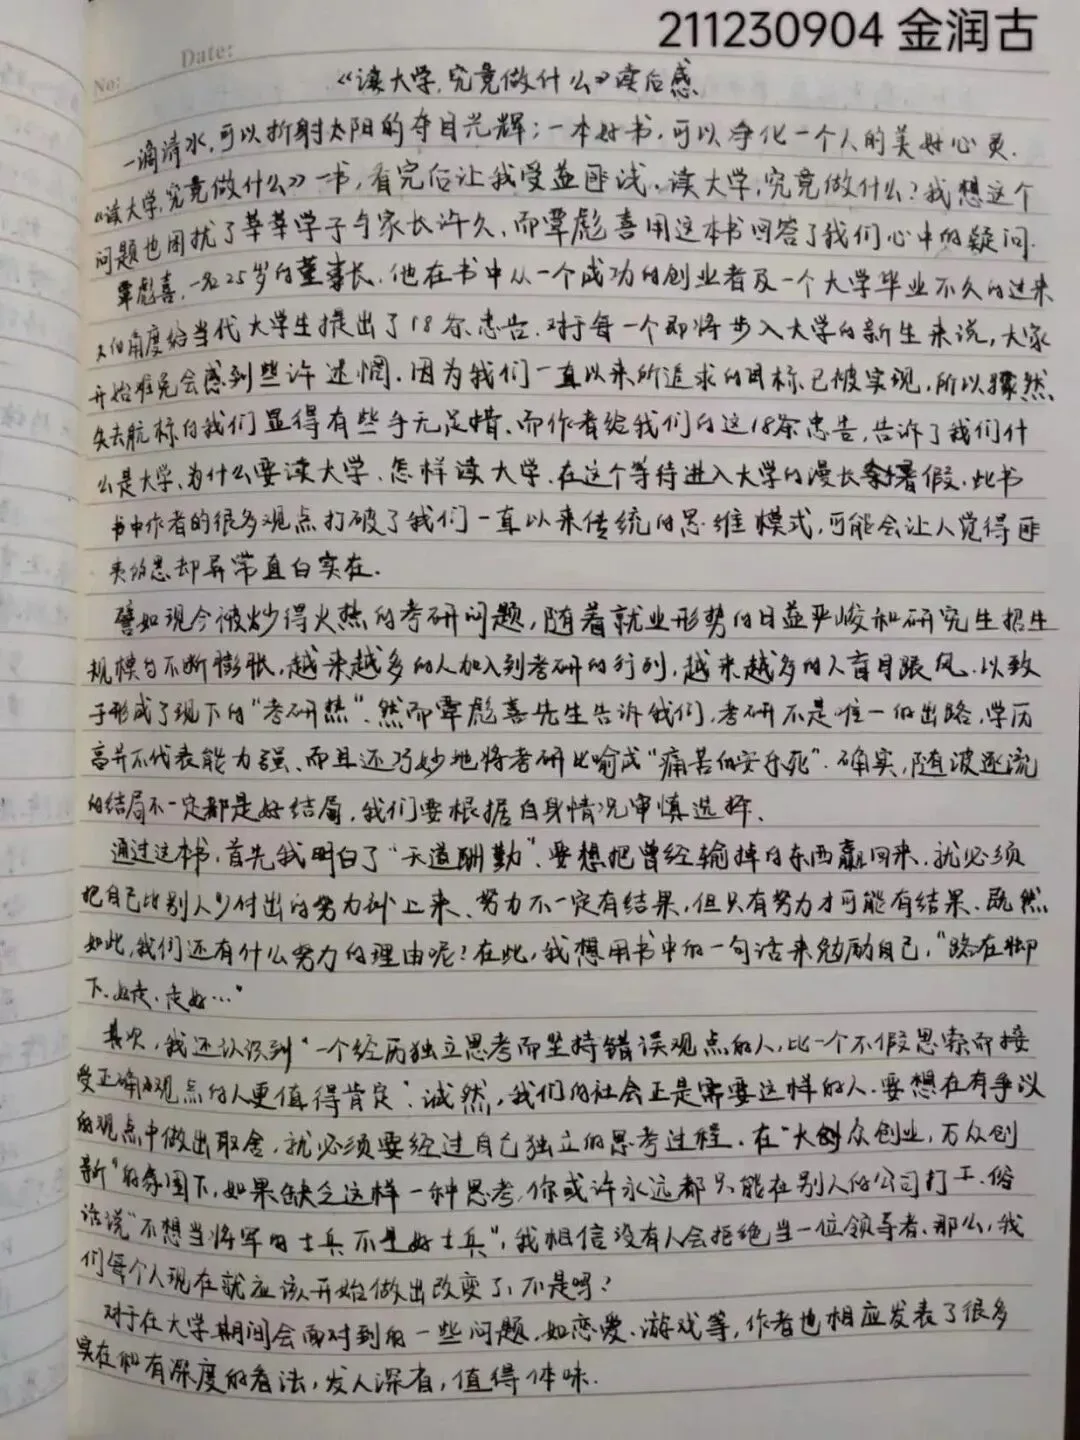 211230904 金润古
Date:
No:
《读大学,究竟做什么》读后感
一滴清水,可以折射太阳的夺目光辉;一本好书,可以净化一个人的美好心灵.
《读大学,究竟做什么》一书,看完后让我受益匪浅.读大学,究竟做什么?我想这个
问题也困扰了莘莘学子与家长许久,而覃彪喜用这本书回答了我们心中的疑问.
覃彪喜,一名25岁的董事长.他在书中从一个成功的创业者及一个大学毕业不久的过来
人的角度给当代大学生提出了18条忠告.对于每一个即将步入大学的新生来说,大家
开始难免会感到些许迷惘.因为我们一直以来所追求的目标已被实现,所以骤然
失去航标的我们显得有些手无足措.而作者给我们的这18条忠告,告诉了我们什
么是大学、为什么要读大学、怎样读大学.在这个等待进入大学的漫长暑假.此书
书中作者的很多观点打破了我们一直以来传统的思维模式,可能会让人觉得匪
夷的思却异常直白实在.
譬如现今被炒得火热的考研问题,随着就业形势的日益严峻和研究生招生
规模的不断膨胀,越来越多的人加入到考研的行列,越来越多的人盲目跟风.以致
于形成了现下的“考研热”.然而覃彪喜先生告诉我们,考研不是唯一的出路,学历
高并不代表能力强、而且还巧妙地将考研比喻成“痛苦的安乐死”.确实,随波逐流
的结局不一定都是好结局,我们要根据自身情况审慎选择.
通过这本书,首先我明白了“天道酬勤”.要想把曾经输掉的东西赢回来.就必须
把自己比别人少付出的努力补上来、努力不一定有结果,但只有努力才可能有结果.既然
如此,我们还有什么努力的理由呢?在此,我想用书中的一句话来勉励自己,“路在脚
下、好走、走好…”
其次,我还认识到“一个经历独立思考而坚持错误观点的人,比一个不假思索而接
受正确的观点的人更值得肯定”.诚然,我们的社会正是需要这样的人.要想在有争议
的观点中做出取舍,就必须要经过自己独立的思考过程.在“大众创业,万众创
新”的氛围下,如果缺乏这样一种思考,你或许永远都只能在别人的公司打工.俗
话说“不想当将军的士兵不是好士兵”,我相信没有人会拒绝当一位领导者.那么,我
们每个人现在就应该开始做出改变了,不是吗?
对于在大学期间会面对到的一些问题.如恋爱、游戏等,作者也相应发表了很多
实在和有深度的看法,发人深省,值得体味.